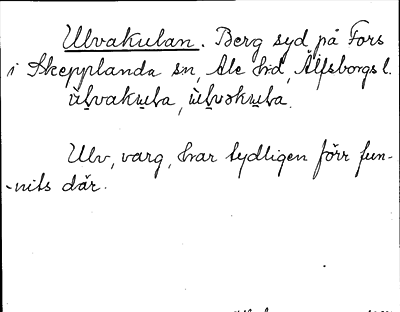 Ulvakulan. Berg syd på Fors
i Skepplanda sn, Ale hd, Älfsborgs l.
Ulv, varg, har tydligen förr fun-
-nits där.